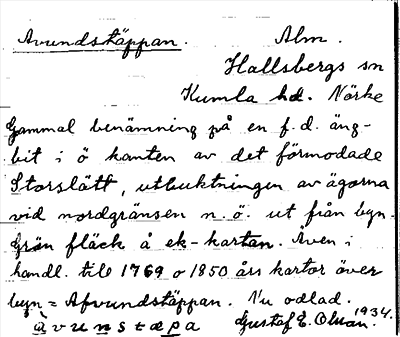 Avundstäppan. Alm.
Hallsbergs sn
Kumla hd. Närke
Gammal benämning på en f.d. äng-
bit i ö kanten av det förmodade
Storslätt, utbuktningen av ägorna
vid nordgränsen n.ö. ut från byn.
Grön fläck å ek-kartan. Även i
handl. till 1769 o 1850 års kartor över
byn = Afvundstäppan. Nu odlad.
avunstæpa Gustaf E. Olsson. 1934.